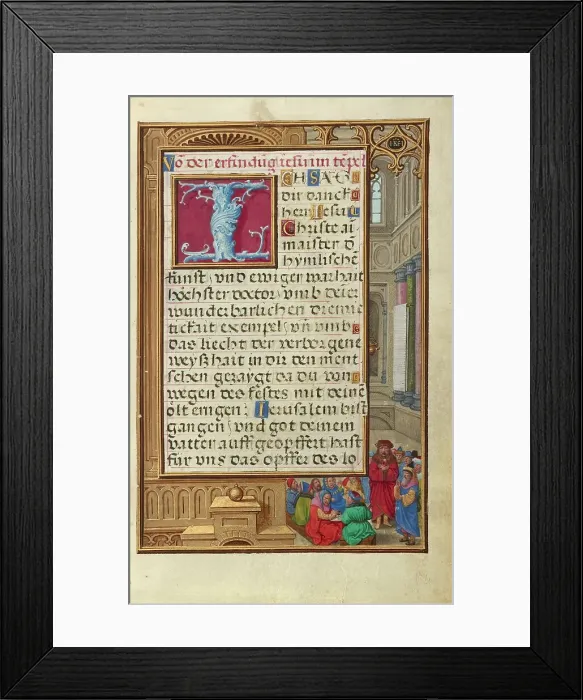 Võ der erfindũg iesu im tẽpel
ICH SAG
dir danck
her Iesu
Christe ai
maister d̃
hymlische
kunst, vnd ewiger warhait
höchster doctor, vmb deiner
wunderbarlichen diemie
tickait exempel, vñ vmb
das liecht der verborgene
weyßhait in dir den ment
schen gezaygt da du von
wegen des festes mit deinẽ
ölt ernigen: Ierusalem bist
gangen, vnd got deinem
vatter auff geopffert hast
für vns das opffer des lo